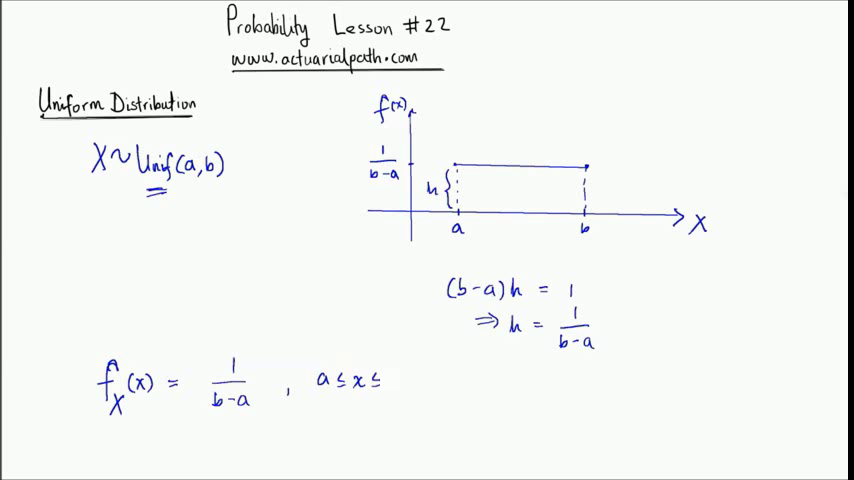 Probability Lesson #22
www.actuarialpath.com
Uniform Distribution
X ~ Unif(a,b)
f(x)
1/(b-a)
h {
a
b
X
(b-a)h = 1
⇒ h = 1/(b-a)
f_X(x) = 1/(b-a) , a ≤ x ≤